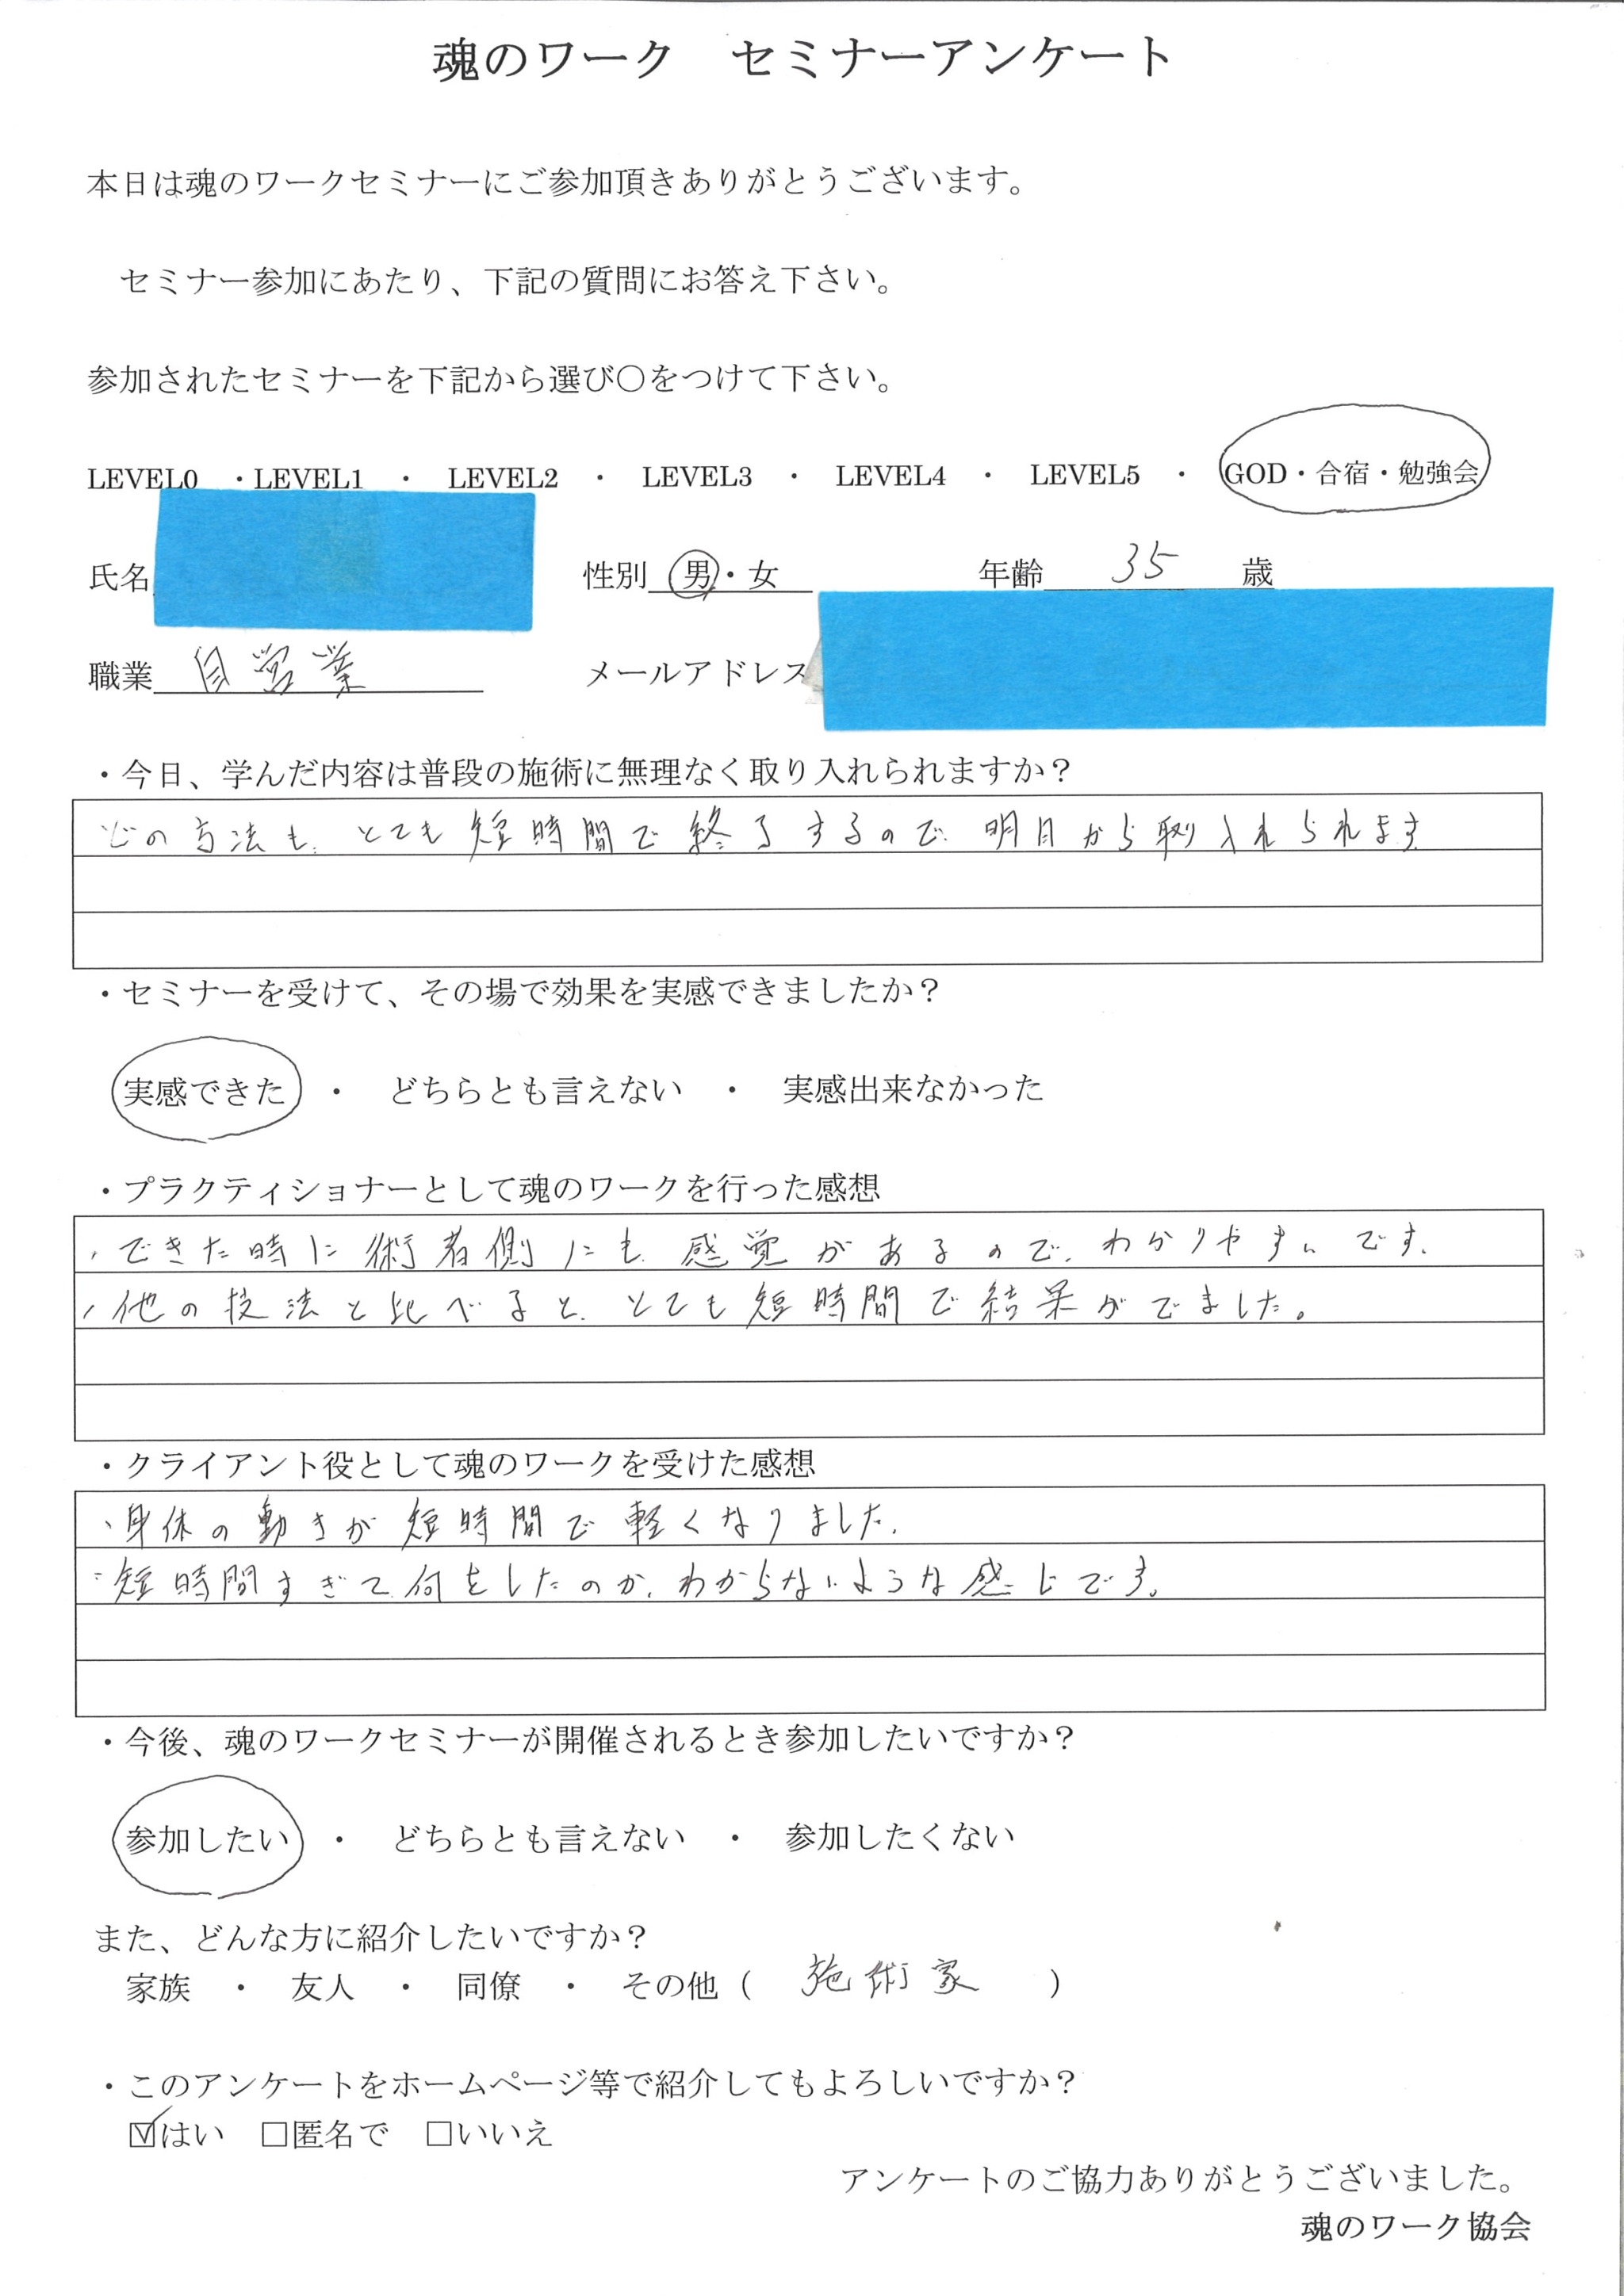 魂のワーク　セミナーアンケート
本日は魂のワークセミナーにご参加頂きありがとうございます。
セミナー参加にあたり、下記の質問にお答え下さい。
参加されたセミナーを下記から選び〇をつけて下さい。
LEVEL0 ・LEVEL1 ・ LEVEL2 ・ LEVEL3 ・ LEVEL4 ・ LEVEL5 ・ GOD・合宿・勉強会
氏名 性別 男・女 年齢 35 歳
職業 自営業 メールアドレス
・今日、学んだ内容は普段の施術に無理なく取り入れられますか？
どの方法も、とても短時間で終了するので、明日から取り入れられます
・セミナーを受けて、その場で効果を実感できましたか？
実感できた ・ どちらとも言えない ・ 実感出来なかった
・プラクティショナーとして魂のワークを行った感想
・できた時に術者側にも、感覚があるので、わかりやすいです。
・他の技法と比べると、とても短時間で結果がでました。
・クライアント役として魂のワークを受けた感想
・身体の動きが短時間で軽くなりました。
・短時間すぎて、何をしたのか、わからないような感じです。
・今後、魂のワークセミナーが開催されるとき参加したいですか？
参加したい ・ どちらとも言えない ・ 参加したくない
また、どんな方に紹介したいですか？
家族 ・ 友人 ・ 同僚 ・ その他（ 施術家 ）
・このアンケートをホームページ等で紹介してもよろしいですか？
☑はい □匿名で □いいえ
アンケートのご協力ありがとうございました。
魂のワーク協会